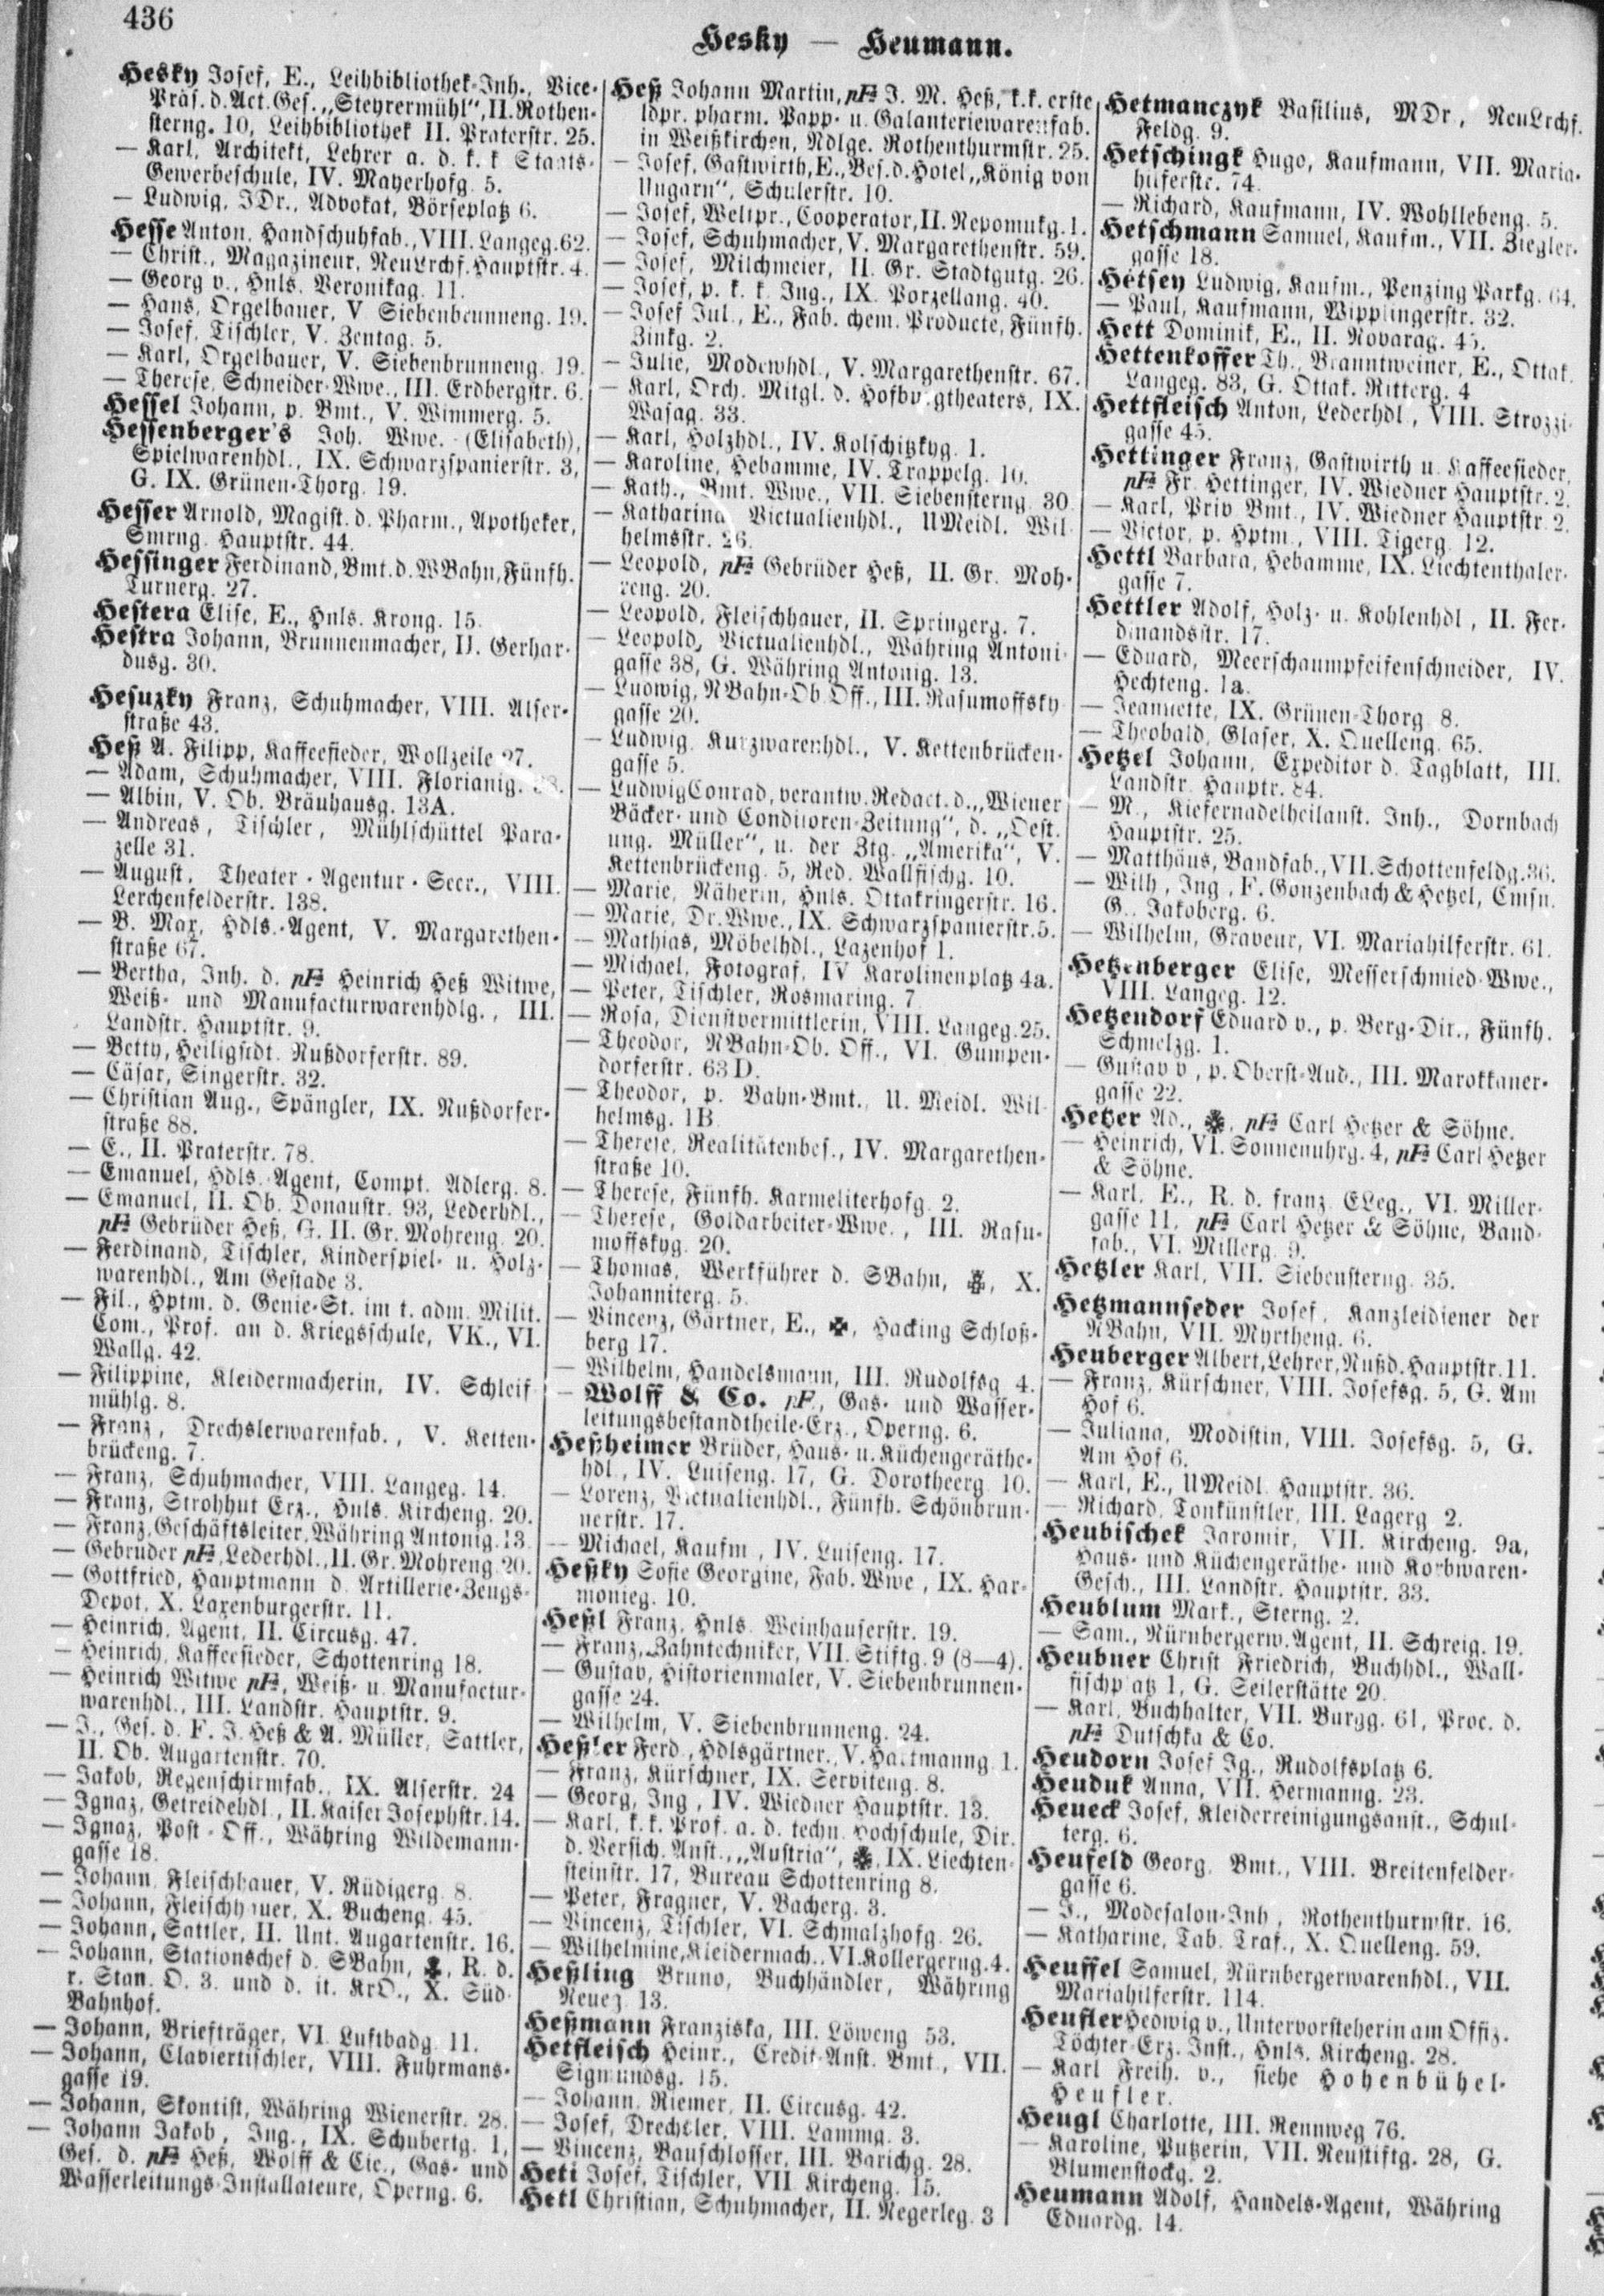 436
Hesky — Heumann.
Hesky Josef, E., Leihbibliothek-Inh., Vice-
Präs. d. Act. Ges. „Steyrermühl", II. Rothen-
sterng. 10, Leihbibliothek II. Praterstr. 25.
— Karl, Architekt, Lehrer a. d. k. k Staats-
Gewerbeschule, IV. Mayerhofg. 5.
— Ludwig, JDr., Advokat, Börseplatz 6.
Hesse Anton, Handschuhfab., VIII. Langeg. 62.
— Christ., Magazineur, NeuLrchf. Hauptstr. 4.
— Georg v., Hnls. Veronikag. 11.
— Hans, Orgelbauer, V. Siebenbrunneng. 19.
— Josef, Tischler, V. Zentag. 5.
— Karl, Orgelbauer, V. Siebenbrunneng. 19.
— Therese, Schneider-Wwe., III. Erdbergstr. 6.
Hessel Johann, p. Bmt., V. Wimmerg. 5.
Hessenberger's Joh. Wwe. (Elisabeth),
Spielwarenhdl., IX. Schwarzspanierstr. 3,
G. IX. Grünen-Thorg. 19.
Hesser Arnold, Magist. d. Pharm., Apotheker,
Smrng. Hauptstr. 44.
Hessinger Ferdinand, Bmt. d. WBahn, Fünfh.
Turnerg. 27.
Hestera Elise, E., Hnls. Krong. 15.
Hestra Johann, Brunnenmacher, II. Gerhar-
dusg. 30.
Hesuzky Franz, Schuhmacher, VIII. Alser-
straße 43.
Heß A. Filipp, Kaffeesieder, Wollzeile 27.
— Adam, Schuhmacher, VIII. Florianig.
— Albin, V. Ob. Bräuhausg. 13A.
— Andreas, Tischler, Mühlschüttel Para-
zelle 31.
— August, Theater-Agentur-Secr., VIII.
Lerchenfelderstr. 138.
— B. Max, Hdls.-Agent, V. Margarethen-
straße 67.
— Bertha, Inh. d. pF Heinrich Heß Witwe,
Weiß- und Manufacturwarenhdlg., III.
Landstr. Hauptstr. 9.
— Betty, Heiligstdt. Nußdorferstr. 89.
— Cäsar, Singerstr. 32.
— Christian Aug., Spängler, IX. Nußdorfer-
straße 88.
— E., II. Praterstr. 78.
— Emanuel, Hdls.-Agent, Compt. Adlerg. 8.
— Emanuel, II. Ob. Donaustr. 93, Lederhdl.,
pF Gebrüder Heß, G. II. Gr. Mohreng. 20.
— Ferdinand, Tischler, Kinderspiel- u. Holz-
warenhdl., Am Gestade 3.
— Fil., Hptm. d. Genie-St. im t. adm. Milit.
Com., Prof. an d. Kriegsschule, VK., VI.
Wallg. 42.
— Filippine, Kleidermacherin, IV. Schleif
mühlg. 8.
— Franz, Drechslerwarenfab., V. Ketten-
brückeng. 7.
— Franz, Schuhmacher, VIII. Langeg. 14.
— Franz, Strohhut Erz., Hnls. Kircheng. 20.
— Franz, Geschäftsleiter, Währing Antonig. 13
— Gebrüder pF, Lederhdl., II. Gr. Mohreng. 20.
— Gottfried, Hauptmann d. Artillerie-Zeugs-
Depot, X. Laxenburgerstr. 11.
— Heinrich, Agent, II. Circusg. 47.
— Heinrich, Kaffeesieder, Schottenring 18.
— Heinrich Witwe pF, Weiß- u. Manufactur-
warenhdl., III. Landstr. Hauptstr. 9.
— J., Ges. d. F. J. Heß & A. Müller, Sattler,
II. Ob. Augartenstr. 70.
— Jakob, Regenschirmfab., IX. Alserstr. 24
— Ignaz, Getreidehdl., II. Kaiser Josephstr. 14.
— Ignaz, Post-Off., Währing Wildemann-
gasse 18.
— Johann, Fleischhauer, V. Rüdigerg. 8.
— Johann, Fleischhauer, X. Bucheng. 45.
— Johann, Sattler, II. Unt. Augartenstr. 16.
— Johann, Stationschef d. SBahn, R. d.
r. Stan. O. 3. und d. it. KrO., X. Süd-
Bahnhof.
— Johann, Briefträger, VI. Luftbadg. 11.
— Johann, Claviertischler, VIII. Fuhrmans-
gasse 19.
— Johann, Skontist, Währing Wienerstr. 28.
— Johann Jakob, Ing., IX. Schubertg. 1,
Ges. d. pF Heß, Wolff & Cie., Gas- und
Wasserleitungs-Installateure, Operng. 6.
Heß Johann Martin, pF J. M. Heß, k. k. erste
ldpr. pharm. Papp- u. Galanteriewarenfab.
in Weißkirchen, Ndlge. Rothenthurmstr. 25.
— Josef, Gastwirth, E., Bes. d. Hotel „König von
Ungarn", Schulerstr. 10.
— Josef, Weltpr., Cooperator, II. Nepomukg. 1.
— Josef, Schuhmacher, V. Margarethenstr. 59.
— Josef, Milchmeier, II. Gr. Stadtgutg. 26.
— Josef, p. k. k. Ing., IX. Porzellang. 40.
— Josef Jul., E., Fab. chem. Producte, Fünfh.
Zinkg. 2.
— Julie, Modewhdl., V. Margarethenstr. 67.
— Karl, Orch. Mitgl. d. Hofburgtheaters, IX.
Wasag. 33.
— Karl, Holzhdl., IV. Kolschitzkyg. 1.
— Karoline, Hebamme, IV. Trappelg. 10.
— Kath., Bmt. Wwe., VII. Siebensterng. 30
— Katharina Victualienhdl., UMeidl. Wil-
helmsstr. 26.
— Leopold, pF Gebrüder Heß, II. Gr. Moh-
reng. 20.
— Leopold, Fleischhauer, II. Springerg. 7.
— Leopold, Victualienhdl., Währing Antoni-
gasse 38, G. Währing Antonig. 13.
— Ludwig, NBahn-Ob. Off., III. Rasumoffsky
gasse 20.
— Ludwig, Kurzwarenhdl., V. Kettenbrücken-
gasse 5.
— Ludwig Conrad, verantw. Redact. d. „Wiener
Bäcker- und Conditoren-Zeitung", d. „Oest.
ung. Müller", u. der Ztg. „Amerika", V.
Kettenbrückeng. 5, Red. Wallfischg. 10.
— Marie, Näherin, Hnls. Ottakringerstr. 16.
— Marie, Dr. Wwe., IX. Schwarzspanierstr. 5.
— Mathias, Möbelhdl., Lazenhof 1.
— Michael, Fotograf, IV Karolinenplatz 4a.
— Peter, Tischler, Rosmaring. 7
— Rosa, Dienstvermittlerin, VIII. Langeg. 25.
— Theodor, NBahn-Ob. Off., VI. Gumpen-
dorferstr. 63 D.
— Theodor, p. Bahn-Bmt., U. Meidl. Wil-
helmsg. 1B
— Therese, Realitätenbes., IV. Margarethen-
straße 10.
— Therese, Fünfh. Karmeliterhofg. 2.
— Therese, Goldarbeiter-Wwe., III. Rasu-
moffskyg. 20.
— Thomas, Werkführer d. SBahn, X.
Johanniterg. 5.
— Vincenz, Gärtner, E., Hacking Schloß-
berg 17.
— Wilhelm, Handelsmann, III. Rudolfsg 4.
— Wolff & Co. pF., Gas- und Wasser-
leitungsbestandtheile-Erz., Operng. 6.
Heßheimer Brüder, Haus- u. Küchengeräthe-
hdl., IV. Luiseng. 17, G. Dorotheerg 10.
— Lorenz, Victualienhdl., Fünfh. Schönbrun-
nerstr. 17.
— Michael, Kaufm., IV. Luiseng. 17.
Heßky Sofie Georgine, Fab. Wwe., IX. Har-
monieg. 10.
Heßl Franz, Hnls. Weinhauserstr. 19.
— Franz, Zahntechniker, VII. Stiftg. 9 (8—4).
— Gustav, Historienmaler, V. Siebenbrunnen-
gasse 24.
— Wilhelm, V. Siebenbrunneng. 24.
Heßler Ferd., Hdlsgärtner., V. Hartmanng. 1.
— Franz, Kürschner, IX. Serviteng. 8.
— Georg, Ing., IV. Wiedner Hauptstr. 13.
— Karl, k. k. Prof. a. d. techn. Hochschule, Dir.
d. Versich. Anst., „Austria", IX. Liechten-
steinstr. 17, Bureau Schottenring 8.
— Peter, Fragner, V. Bacherg. 3.
— Vincenz, Tischler, VI. Schmalzhofg. 26.
— Wilhelmine, Kleidermach., VI. Kollergerng. 4.
Heßling Bruno, Buchhändler, Währing
Neueg 13.
Heßmann Franziska, III. Löweng 53.
Hetfleisch Heinr., Credit-Anst. Bmt., VII.
Sigmundsg. 15.
— Johann, Riemer, II. Circusg. 42.
— Josef, Drechsler, VIII. Lammg. 3.
— Vincenz, Bauschlosser, III. Barichg. 28.
Heti Josef, Tischler, VII Kircheng. 15.
Hetl Christian, Schuhmacher, II. Negerleg. 3
Hetmanczyk Basilius, MDr., NeuLrchf.
Feldg. 9.
Hetschingk Hugo, Kaufmann, VII. Maria-
hilferstr. 74.
— Richard, Kaufmann, IV. Wohllebeng. 5.
Hetschmann Samuel, Kaufm., VII. Ziegler-
gasse 18.
Hetsey Ludwig, Kaufm., Penzing Parkg. 64.
— Paul, Kaufmann, Wipplingerstr. 32.
Hett Dominik, E., II. Novarag. 45.
Hettenkoffer Th., Branntweiner, E., Ottak.
Langeg. 83, G. Ottak. Ritterg. 4
Hettfleisch Anton, Lederhdl., VIII. Strozzi-
gasse 45.
Hettinger Franz, Gastwirth u. Kaffeesieder,
pF Fr. Hettinger, IV. Wiedner Hauptstr. 2.
— Karl, Priv Bmt., IV. Wiedner Hauptstr. 2.
— Victor, p. Hptm., VIII. Tigerg. 12.
Hettl Barbara, Hebamme, IX. Liechtenthaler-
gasse 7.
Hettler Adolf, Holz- u. Kohlenhdl, II. Fer-
dinandsstr. 17.
— Eduard, Meerschaumpfeifenschneider, IV.
Hechteng. 1a.
— Jeannette, IX. Grünen-Thorg 8.
— Theobald, Glaser, X. Quelleng. 65.
Hetzel Johann, Expeditor d. Tagblatt, III.
Landstr. Hauptr. 84.
— M., Kiefernadelheilanst. Inh., Dornbach
Hauptstr. 25.
— Matthäus, Bandfab., VII. Schottenfeldg. 36.
— Wilh., Ing., F. Gonzenbach & Hetzel, Cmsn.
G., Jakoberg. 6.
— Wilhelm, Graveur, VI. Mariahilferstr. 61.
Hetzenberger Elise, Messerschmied-Wwe.,
VIII. Langeg. 12.
Hetzendorf Eduard v., p. Berg-Dir., Fünfh.
Schmelzg. 1.
— Gustav v., p. Oberst-Aud., III. Marokkaner-
gasse 22.
Hetzer Ad., pF Carl Hetzer & Söhne.
— Heinrich, VI. Sonnenuhrg. 4, pF Carl Hetzer
& Söhne.
— Karl, E., R. d. franz. ELeg., VI. Miller-
gasse 11, pF Carl Hetzer & Söhne, Band-
fab., VI. Millerg. 9.
Hetzler Karl, VII. Siebensterng. 35.
Hetzmannseder Josef, Kanzleidiener der
NBahn, VII. Myrtheng. 6.
Heuberger Albert, Lehrer, Nußd. Hauptstr. 11.
— Franz, Kürschner, VIII. Josefsg. 5, G. Am
Hof 6.
— Juliana, Modistin, VIII. Josefsg. 5, G.
Am Hof 6.
— Karl, E., UMeidl. Hauptstr. 36.
— Richard, Tonkünstler, III. Lagerg 2.
Heubischek Jaromir, VII. Kircheng. 9a,
Haus- und Küchengeräthe- und Korbwaren-
Gesch., III. Landstr. Hauptstr. 33.
Heublum Mark., Sterng. 2.
— Sam., Nürnbergerw. Agent, II. Schreig. 19.
Heubner Christ Friedrich, Buchhdl., Wall-
fischplatz 1, G. Seilerstätte 20.
— Karl, Buchhalter, VII. Burgg. 61, Proc. d.
pF Dutschka & Co.
Heudorn Josef Ig., Rudolfsplatz 6.
Heuduk Anna, VII. Hermanng. 23.
Heueck Josef, Kleiderreinigungsanst., Schul-
terg. 6.
Heufeld Georg, Bmt., VIII. Breitenfelder-
gasse 6.
— J., Modesalon-Inh., Rothenthurmstr. 16.
— Katharine, Tab. Traf., X. Quelleng. 59.
Heuffel Samuel, Nürnbergerwarenhdl., VII.
Mariahilferstr. 114.
Heufler Hedwig v., Untervorsteherin am Offiz.
Töchter-Erz. Inst., Hnls. Kircheng. 28.
— Karl Freih. v., siehe Hohenbühel-
Heufler.
Heugl Charlotte, III. Rennweg 76.
— Karoline, Putzerin, VII. Neustiftg. 28, G.
Blumenstockg. 2.
Heumann Adolf, Handels-Agent, Währing
Eduardg. 14.